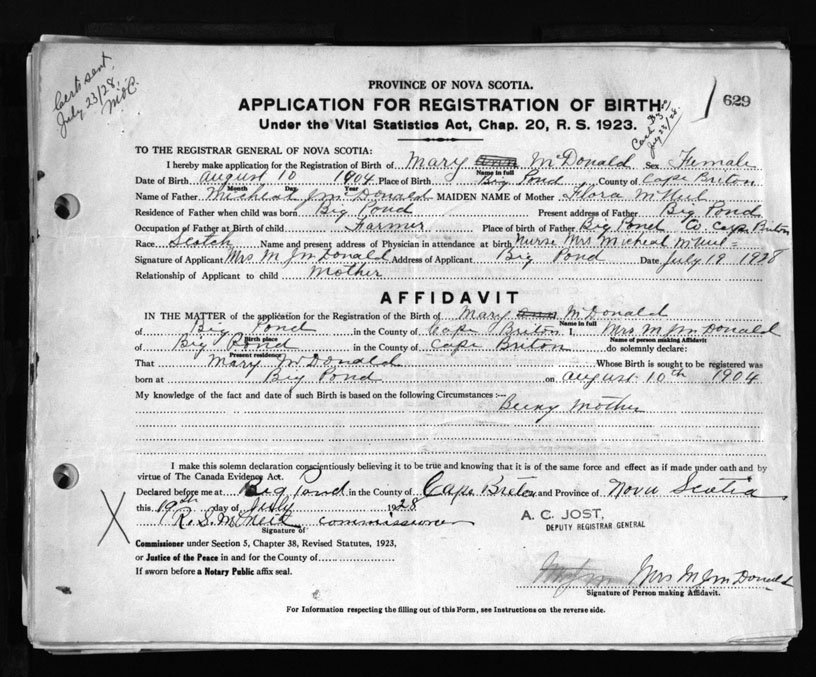 Cert sent
July 23/28.
McC.
PROVINCE OF NOVA SCOTIA.
629
APPLICATION FOR REGISTRATION OF BIRTH
Under the Vital Statistics Act, Chap. 20, R. S. 1923.
July 23/28.
TO THE REGISTRAR GENERAL OF NOVA SCOTIA:
I hereby make application for the Registration of Birth of Mary Ann McDonald Sex Female
Name in full
Date of Birth august 10 1904 Place of Birth Big Pond County of Cape Briton
Month Day Year
Name of Father Micheal J McDonald MAIDEN NAME of Mother Flora McNeil
Residence of Father when child was born Big Pond Present address of Father Big Pond
Occupation of Father at Birth of child Farmer Place of birth of Father Big Pond Co. Cape Briton
Race Scotch Name and present address of Physician in attendance at birth Nurse Mrs Micheal McNeil
Signature of Applicant Mrs M J McDonald Address of Applicant Big Pond Date July 19 1928
Relationship of Applicant to child Mother
AFFIDAVIT
IN THE MATTER of the application for the Registration of the Birth of Mary Ann McDonald
Name in full
of Big Pond in the County of Cape Briton I, Mrs M J McDonald
Birth place Name of person making Affidavit
of Big Pond in the County of Cape Briton do solemnly declare:
Present residence
That Mary McDonald Whose Birth is sought to be registered was
born at Big Pond on august 10th 1904
My knowledge of the fact and date of such Birth is based on the following Circumstances :—
Being Mother
I make this solemn declaration conscientiously believing it to be true and knowing that it is of the same force and effect as if made under oath and by
virtue of The Canada Evidence Act.
Declared before me at Big Pond in the County of Cape Breton and Province of Nova Scotia
this 19th day of July 1928
A. C. JOST,
DEPUTY REGISTRAR GENERAL
R. S. McNeil commissioner
Signature of
Commissioner under Section 5, Chapter 38, Revised Statutes, 1923,
or Justice of the Peace in and for the County of
If sworn before a Notary Public affix seal.
Mrs M J McDonald
Signature of Person making Affidavit.
For Information respecting the filling out of this Form, see Instructions on the reverse side.